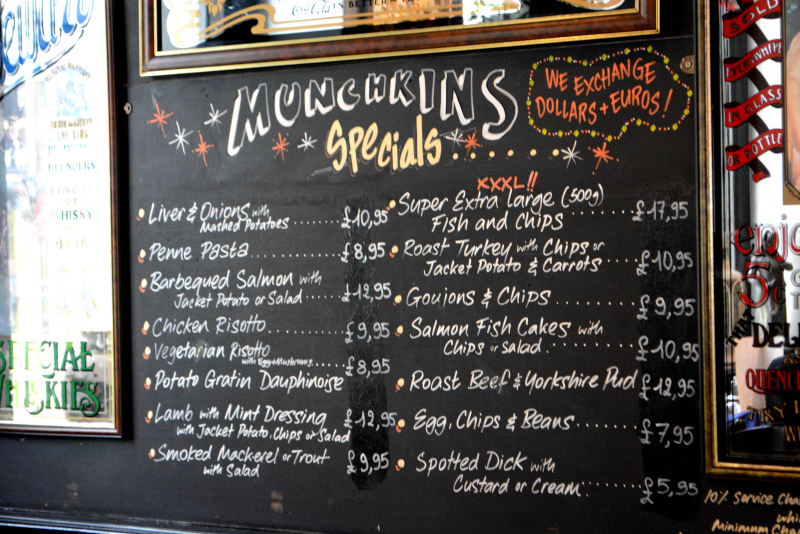 Coca-Cola IS BETTER
MUNCHKINS
Specials.....
WE EXCHANGE
DOLLARS + EUROS!
Liver & Onions with
Mashed Potatoes ...... £10,95
Penne Pasta ...... £8,95
Barbequed Salmon with
Jacket Potato or Salad ...... £12,95
Chicken Risotto ...... £9,95
Vegetarian Risotto
with Egg + Mushrooms ... £8,95
Potato Gratin Dauphinoise
Lamb with Mint Dressing £12,95
with Jacket Potato, Chips or Salad
Smoked Mackerel or Trout £9,95
with Salad
XXXL!!
Super Extra Large (500g)
Fish and Chips ...... £17,95
Roast Turkey with Chips or
Jacket Potato & Carrots ...... £10,95
Goujons & Chips ...... £9,95
Salmon Fish Cakes with
Chips or salad ...... £10,95
Roast Beef & Yorkshire Pud £12,95
Egg, Chips & Beans ...... £7,95
Spotted Dick with
Custard or Cream ...... £5,95
10% Service Cha
Minimum Cha
SPECIAL
WHISKIES
BLENDERS
FINEST
WHISKY
SOLD
IN GLASS
OR BOTTLE
enjo
5¢
DEL
QUENC
TRY